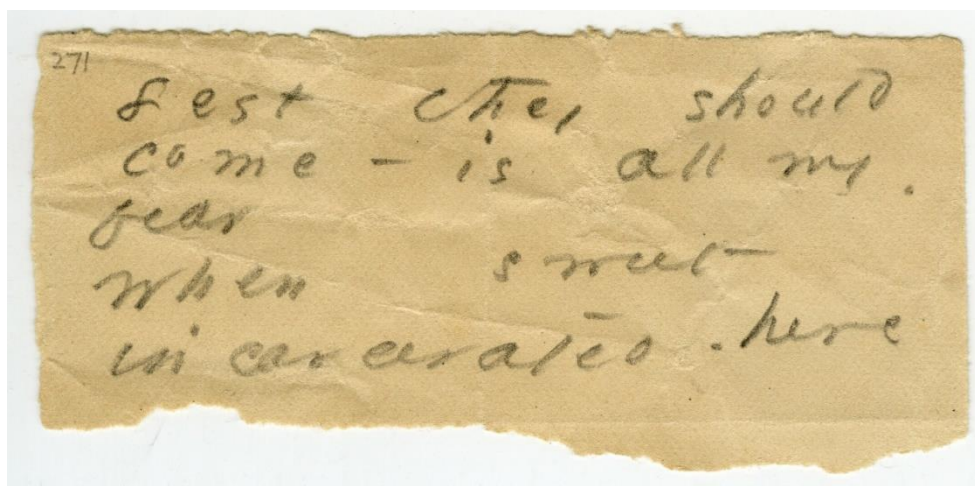 271
Lest they should
come – is all my
fear
when sweet
incarcerated . here